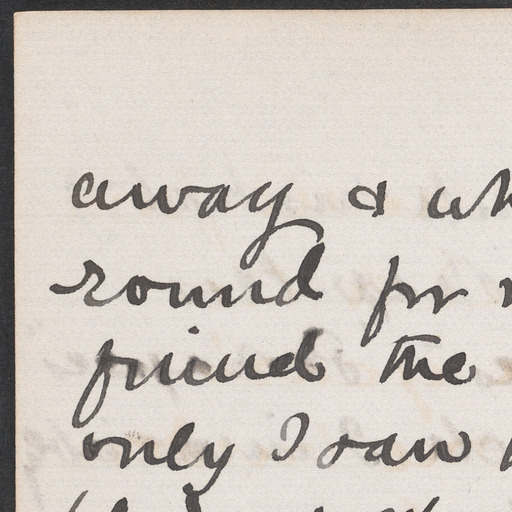 away & wh
round for
friend the
only I saw